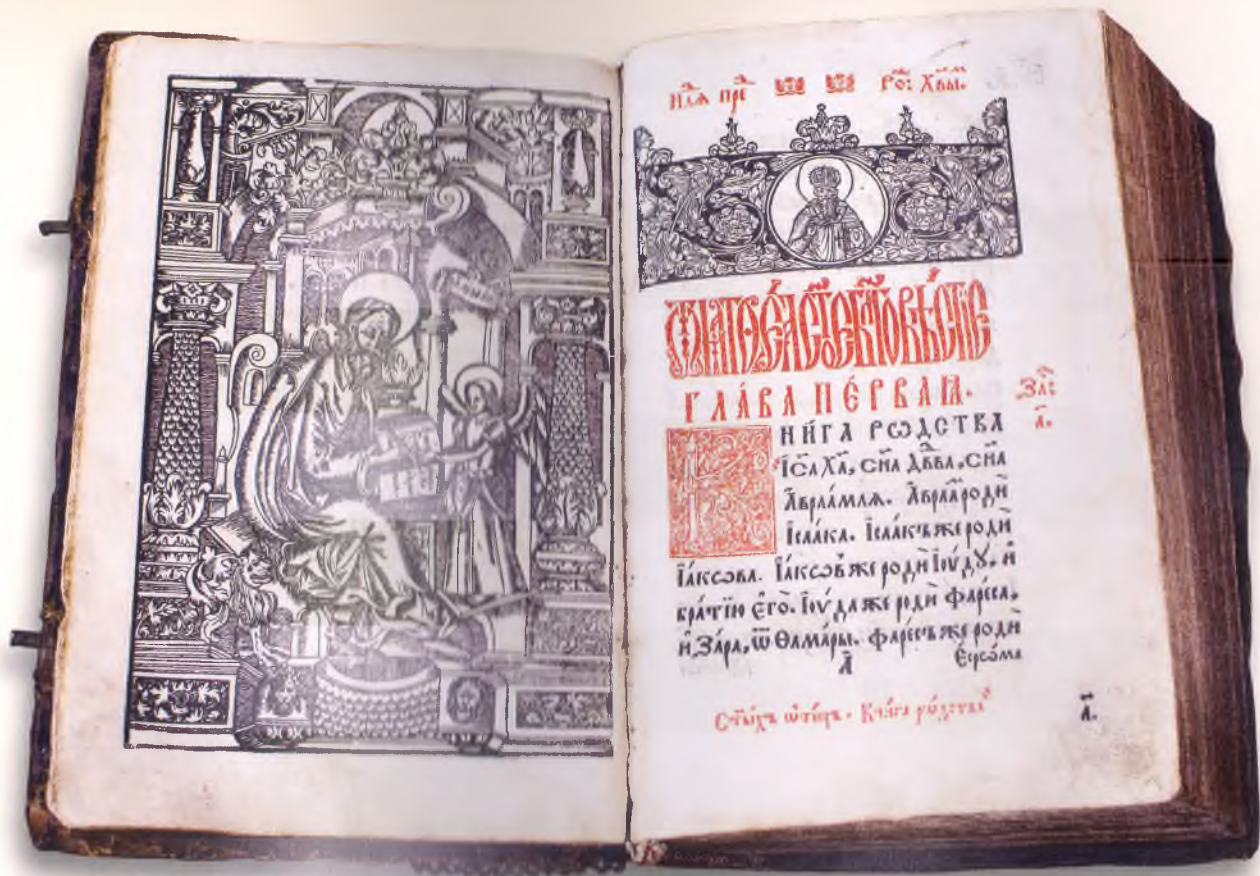 НДⷧ҇Ѧ ПРЕⷤ҇ РОⷤ҇: ХВⷭ҇ЫМ.
Ѿ МАТѲЕ́А СТ҃ОЕ БЛГОВѢСТІЕ
ГЛА́ВА ПЕ́РВАꙖ.
ЗАⷱ҇:
а҃.
КНИ́ГА РѠДСТВА
І҆С҃А Х҃А, СН҃А ДВ҃ДВА, СН҃А
А҆враа́млѧ. А҆враа́мъ родѝ
І҆саа́ка. І҆саа́къ же родѝ
І҆а́кѡва. І҆а́кѡвъ же родѝ І҆ꙋ́дꙋ, и҆
бра́тїю є҆гѡ̀. І҆ꙋ́да же родѝ фаре́са,
и҆ За́ра, ѿ Ѳама́ры. фаре́съ же родѝ
Є҆срѡ́ма
а҃
Ст҃ы́хъ ѻ҆тє́цъ. Кни́га рѡдства̀
а҃.